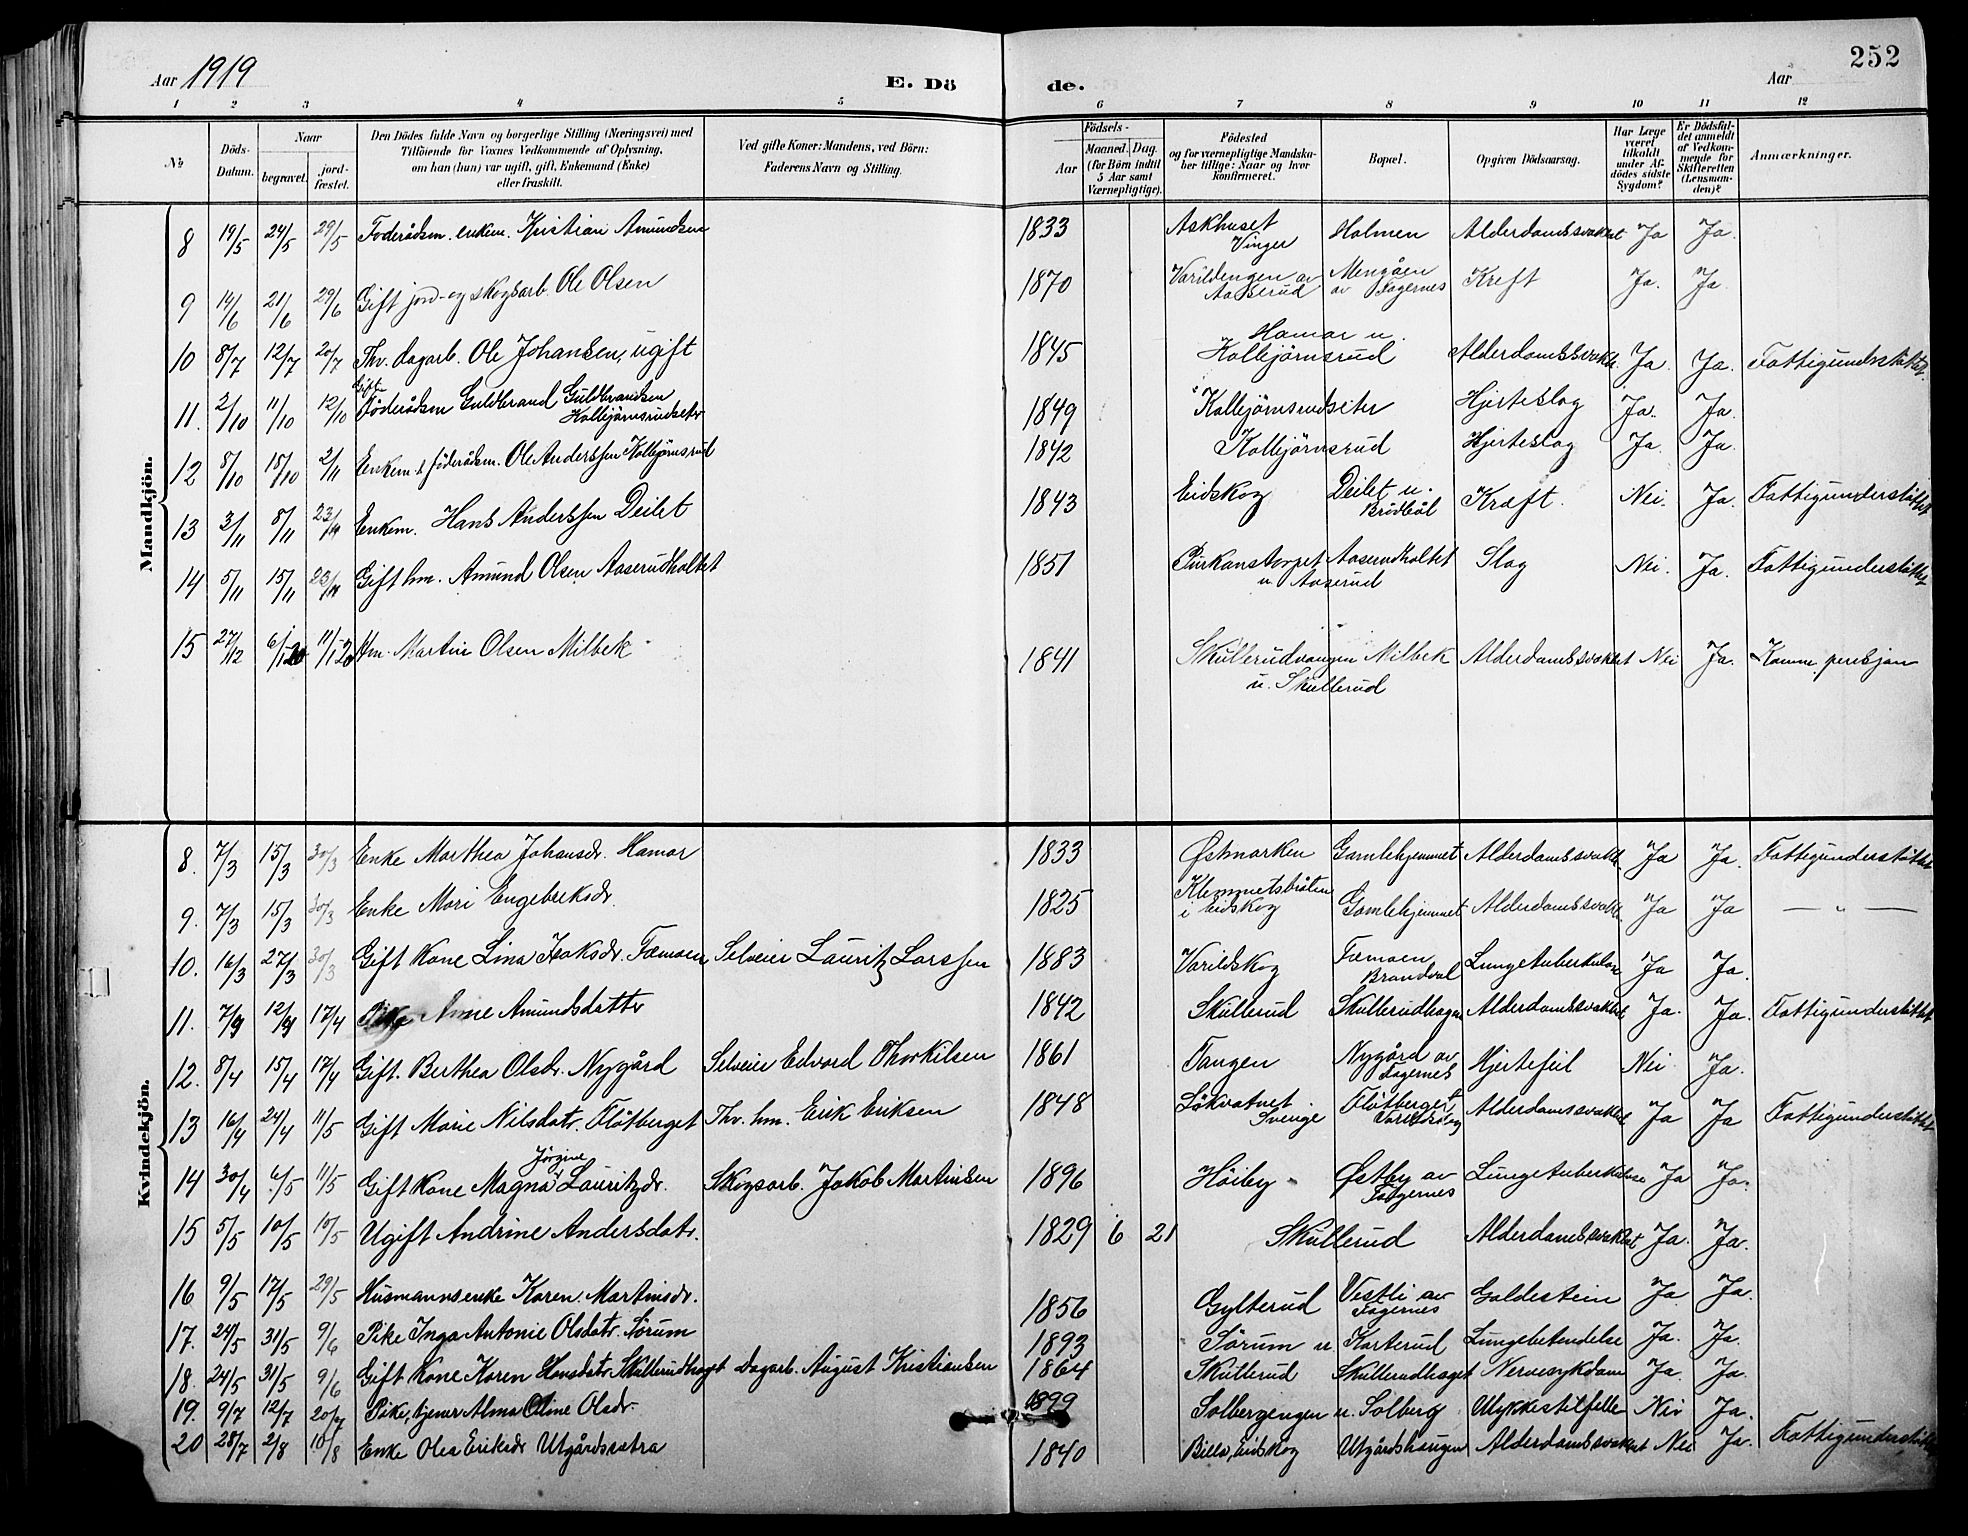 Aar 1919
E. Dö
de.
Aar
252
1 2 3 4 5 6 7 8 9 10 11 12
No
Döds-
Datum.
Naar
begravet.
jord-
fæstet.
Den Dödes fulde Navn og borgerlige Stilling (Næringsvei) med
Tilföiende for Voxnes Vedkommende af Oplysning,
om han (hun) var ugift, gift, Enkemand (Enke)
eller fraskilt.
Ved gifte Koner: Mandens, ved Börn:
Faderens Navn og Stilling.
Födsels-
Aar
Maaned. Dag.
(for Börn indtil
5 Aar samt
Værnepligtige).
Födested
og for værnepligtige Mandska-
ber tillige: Naar og hvor
konfirmeret.
Bopæl.
Opgiven Dödsaarsag.
Har Læge
været
tilkaldt
under Af-
dödes sidste
Sygdom?
Er Dödsfal-
det anmeldt
af Vedkom-
mende for
Skifteretten
(Lensman-
den)?
Anmærkninger.
Mandkjön.
8 19/5 24/5 29/5 Foderådsm. enkem. Kristian Amundsen 1833 Askhuset Holmen Alderdomssvakhet Ja Ja.
Vinger
9 14/6 21/6 29/6 Gift jord- og skogsarb. Ole Olsen 1870 Varildengen av Mengåen Kreft Ja. Ja
Aaserud av Fagernes
10 8/7 12/7 20/7 Thv. dagarb. Ole Johansen, ugift 1845 Hamar u. Alderdomssvakh. Ja. Ja. Fattigunderstöttet.
Kolbjörnsrud
Gift
11. 2/10 11/10 12/10 Föderådsm Guldbrand Guldbrandsen 1849 Kolbjörnsrudseter Hjerteslag Ja. Ja.
Kolbjörnsrudsetr
12 8/10 18/10 2/11 Enkem. föderådsm. Ole Anderssen Kolbjörnsrud 1842 Kolbjörnsrud Hjerteslag Ja. Ja.
13 3/11 8/11 23/11 Enkem. Hans Anderssen Deilet 1843 Eidskog Deilet u. Kræft. Nei. Ja. Fattigunderstöttet
Brödböl
14 5/11 15/11 23/11 Gift hm. Amund Olsen Aaserudholtet 1851 Aaserudholtet Slag Nei. Ja. Fattigunderstöttet
u Aaserud
15 27/12 6/1 20 11/1-20 Hm. Martin Olsen Milbek 1841 Skullerudvangen Milbek Alderdomssvakhet Nei Ja. Komm. pensjon
u. Skullerud
Kvindekjön.
8. 7/3 15/3 30/3 Enke Marthea Johansdr. Hamar 1833 Østmarken Gamlehjemmet Alderdomssvakh. Ja Ja. Fattigunderstöttet
9. 7/3 15/3 30/3 Enke Mari Engebreksdr. 1825 Klemmetsbråten Gamlehjemmet Alderdomssvakh. Ja Ja — " —
i Eidskog
10. 16/3 27/3 30/3 Gift Kone Lina Isaksdr. Tæmoen Selveier Lauritz Larssen 1883 Varildskog Tæmoen Lungetuberkulose Ja Ja.
Brandval
11. 7/4 12/4 17/4 Pike Anne Amundsdattr 1842 Skullerud Skullerudhagen Alderdomssvakhet Ja. Ja. Fattigunderstöttet
12. 8/4 15/4 17/4 Gift. Berthea Olsdr. Nygård Selveier Edvard Thorkilsen 1861 Tangen Nygård av Hjertefeil Nei Ja.
Fagernes
13 16/4 24/4 11/5 Gift Marie Nilsdatr. Flötberget Thv. hm. Erik Eriksen 1848 Lökvatnet Flötberget Alderdomssvakhet Ja Ja Fattigunderstöttet
Svenge Varildskog
Jörgine
14 30/4 6/5 11/5 Gift Kone Magna Lauritzdr. Skogsarb. Jakob Martinsen 1896 Höiby Østby av Lungetuberkulose Ja Ja.
Fagernes
15 5/5 10/5 15/5 Ugift Andrine Andersdatr. 1829 6 21 Skullerud Alderdomssvakhet Ja. Ja.
16 9/5 17/5 29/5 Husmannsenke Karen Martinsdr. 1856 Gylterud Vestli av Galdestein Ja Ja.
Fagernes
17. 24/5 31/5 9/6 Pike Inga Antonie Olsdatr. Sörum 1893 Sörum u. Karterud Lungebetendelse Ja. Ja.
18. 24/5 31/5 9/6 Gift Kone Karen Hansdatr. Skullerudhaget Dagarb. August Kristiansen 1864 Skullerud Skullerudhaget Nervesykdom Ja. Ja.
19. 9/7 12/7 20/7 Pike, tjener Alma Oline Olsdr. 1899 Solbergengen u. Solberg Ulykkestilfelle Nei Ja.
20 28/7 2/8 10/8 Enke Olea Eriksdr Utgårdssætra 1840 Billa, Eidskog Utgårdshaugen Alderdomssvakhet Nei Ja. Fattigunderstöttet